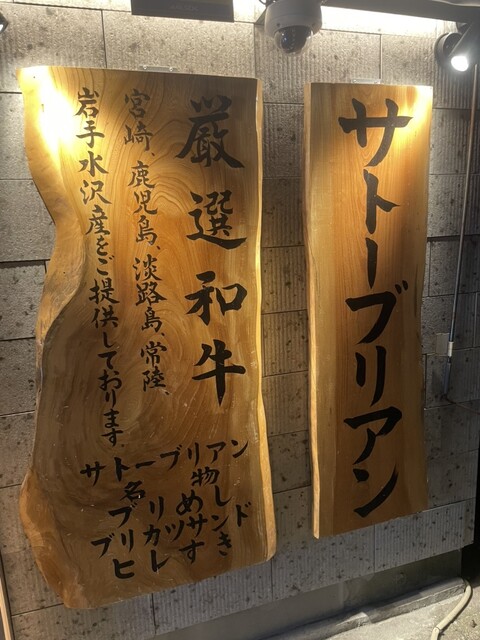 サトーブリアン
厳選和牛
宮崎、鹿児島、淡路島、常陸、
岩手水沢産をご提供しております。
サトーブリアン
名物
ブリめし
ブリカツサンド
ヒレすき